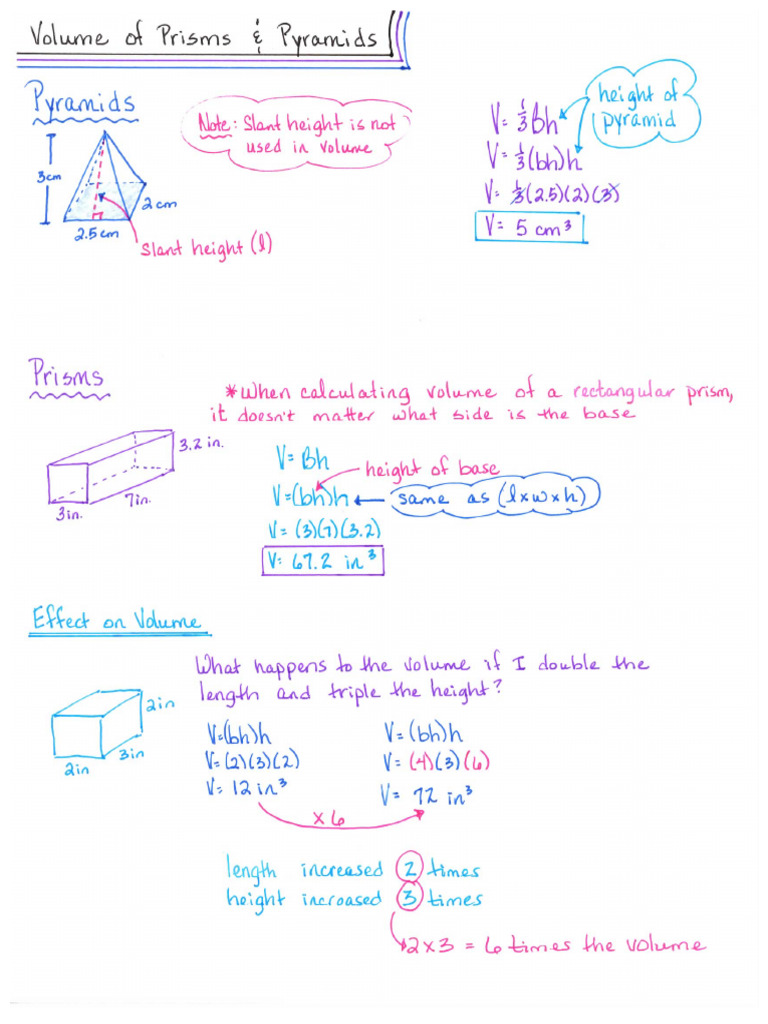 Volume of Prisms & Pyramids
Pyramids
Note: Slant height is not
used in volume
3cm
2 cm
2.5 cm
Slant height (l)
V= 1/3 Bh
V= 1/3 (bh)h
V= 1/3 (2.5)(2)(3)
V= 5 cm³
height of
pyramid
Prisms
*When calculating volume of a rectangular prism,
it doesn't matter what side is the base
3.2 in.
7in.
3in.
V= Bh
height of base
V=(bh)h
same as (l×w×h)
V= (3)(7)(3.2)
V= 67.2 in³
Effect on Volume
What happens to the volume if I double the
length and triple the height?
2in
3in
2in
V=(bh)h
V= (2)(3)(2)
V= 12 in³
V= (bh)h
V= (4)(3)(6)
V= 72 in³
×6
length increased 2 times
height increased 3 times
2×3 = 6 times the volume